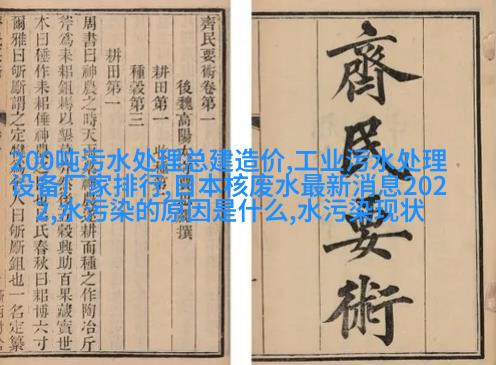 200吨污水处理总建造价,工业污水处理
设备厂家排行,日本核废水最新消息202
2,水污染的原因是什么,水污染现状
齊民要術
齊民要術卷第一
後魏高陽 撰
耕田第一
種穀第三
耕田第一
周書曰神農之時天雨 耕而種之作陶冶斤
斧為耒耜鉏耨以墾 穀興助百果藏實世
本曰倕作耒耜倕神農 氏春秋曰耜博六寸
爾雅曰斪斸謂之定 人曰 斸鉏也一名定纂